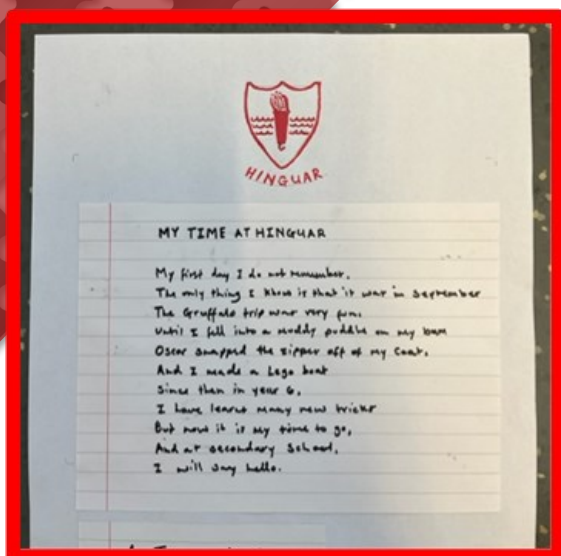 HINGUAR
MY TIME AT HINGUAR
My first day I do not remember.
The only thing I know is that it was in September
The Gruffalo trip was very fun.
Until I fell into a muddy puddle on my bum
Oscar snapped the zipper off of my coat.
And I made a Lego boat
Since then in year 6,
I have learnt many new tricks
But now it is my time to go,
And at secondary school,
I will say hello.